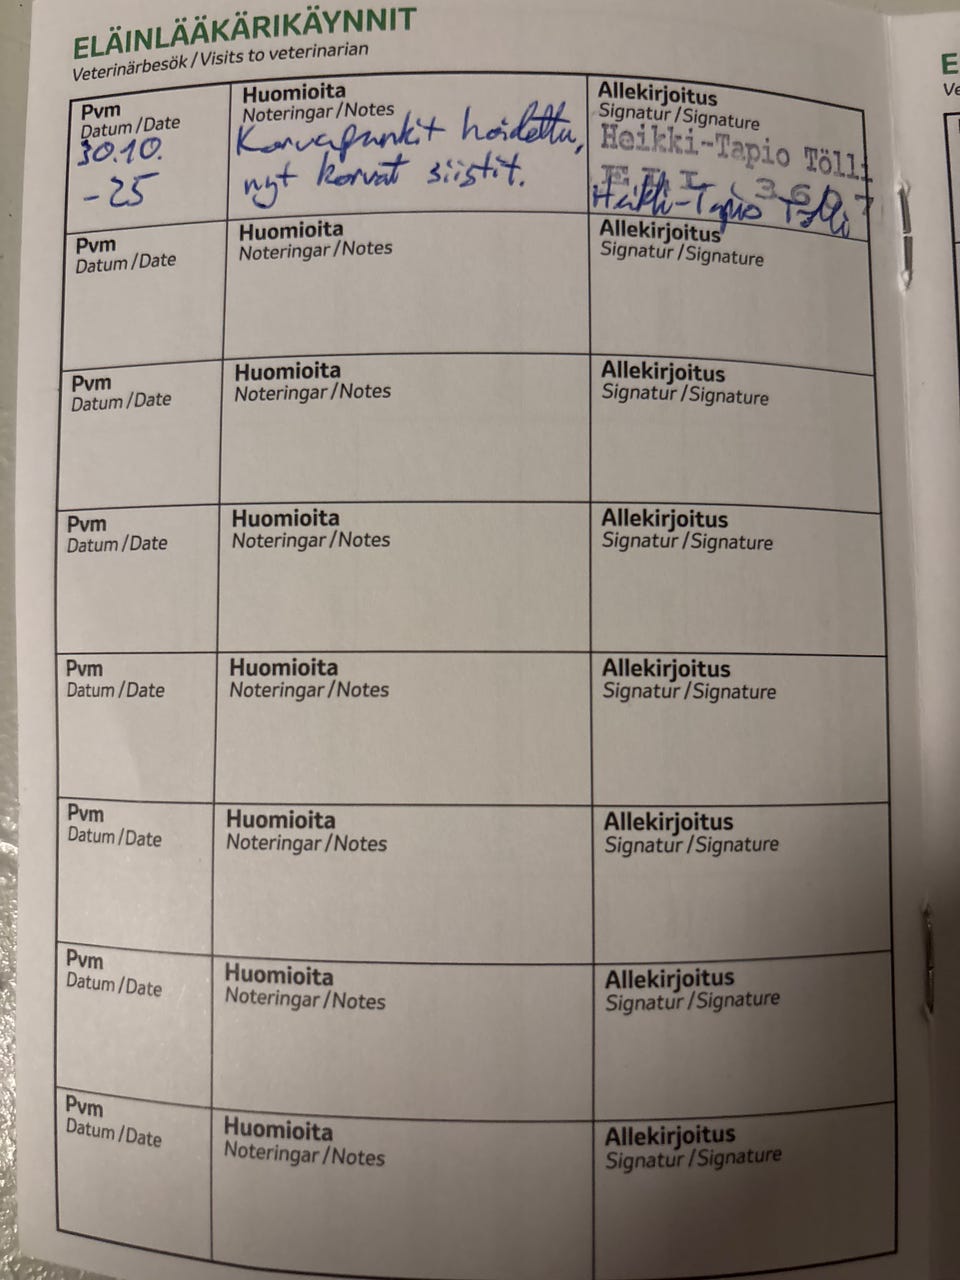 ELÄINLÄÄKÄRIKÄYNNIT
Veterinärbesök / Visits to veterinarian
Pvm
Datum / Date
30.10.
-25
Huomioita
Noteringar / Notes
Korvapunkit hoidettu,
nyt korvat siistit.
Allekirjoitus
Signatur / Signature
Heikki-Tapio Tölli
E L L 3607
Heikki-Tapio Tölli
Pvm
Datum / Date
Huomioita
Noteringar / Notes
Allekirjoitus
Signatur / Signature
Pvm
Datum / Date
Huomioita
Noteringar / Notes
Allekirjoitus
Signatur / Signature
Pvm
Datum / Date
Huomioita
Noteringar / Notes
Allekirjoitus
Signatur / Signature
Pvm
Datum / Date
Huomioita
Noteringar / Notes
Allekirjoitus
Signatur / Signature
Pvm
Datum / Date
Huomioita
Noteringar / Notes
Allekirjoitus
Signatur / Signature
Pvm
Datum / Date
Huomioita
Noteringar / Notes
Allekirjoitus
Signatur / Signature
Pvm
Datum / Date
Huomioita
Noteringar / Notes
Allekirjoitus
Signatur / Signature